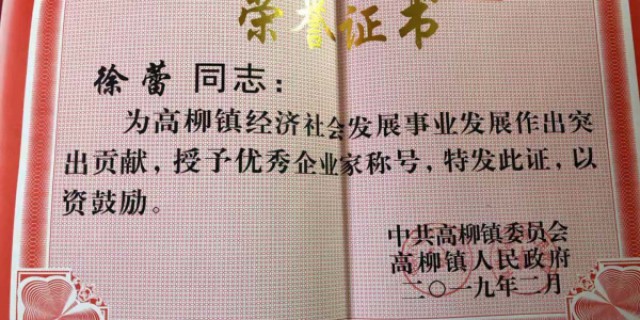 荣誉证书
徐蕾 同志：
为高柳镇经济社会发展事业发展作出突
出贡献，授予优秀企业家称号，特发此证，以
资鼓励。
中共高柳镇委员会
高柳镇人民政府
二〇一九年二月